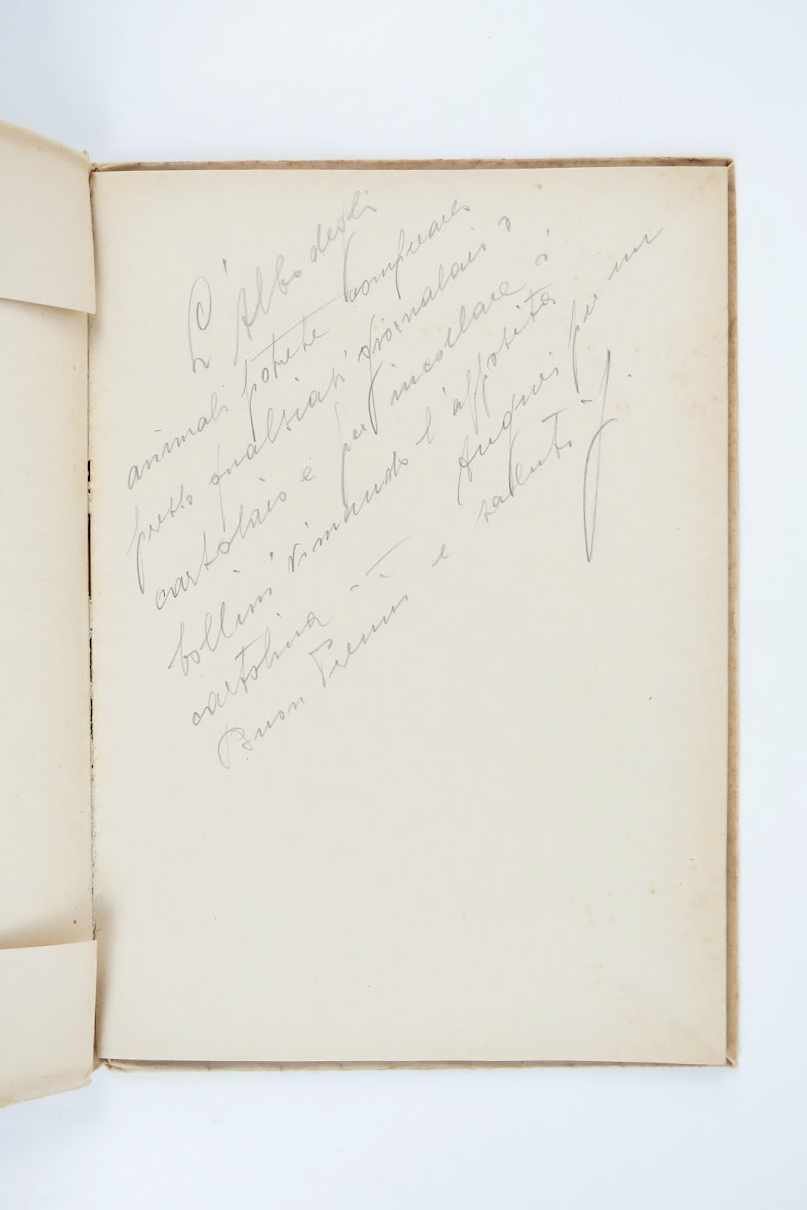 L'Albo degli
animali potrete comprare
presso qualsiasi giornalaio o
cartolaio e per incollare i
bollini rimando l'apposita
cartolina -.- Auguri per un
Buon Premio e saluti -.